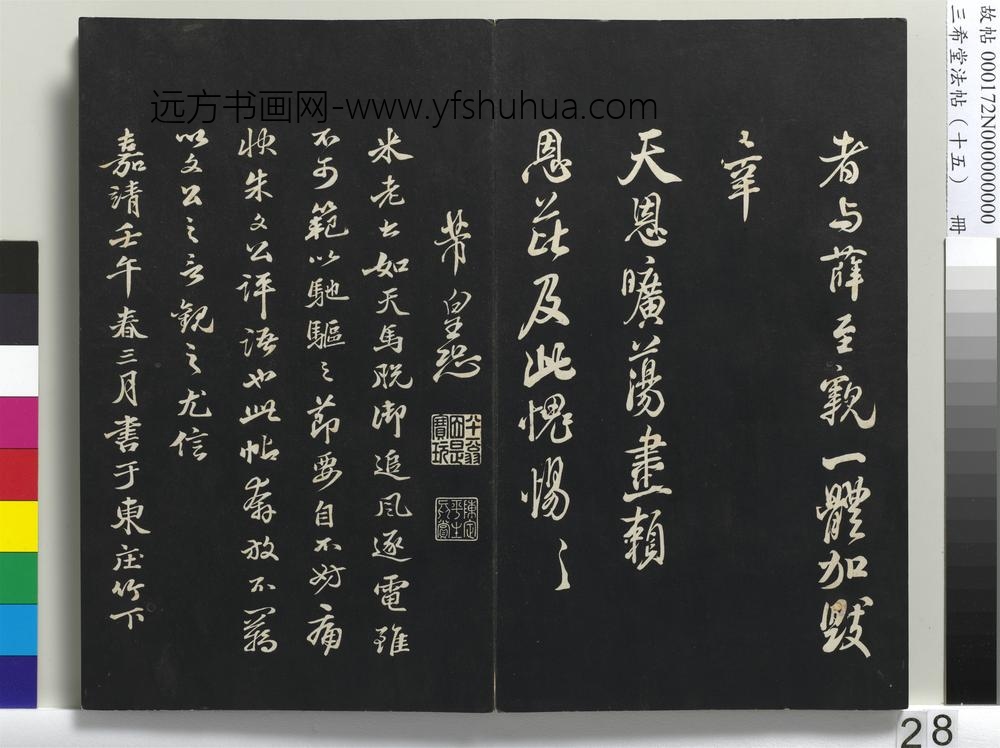 故帖 000172N000000000
三希堂法帖（十五） 册
远方书画网-www.yfshuhua.com
者与薛至親一體加毀
幸
天恩曠蕩盡賴
恩芘及此愧惕〻
芾皇恐
陳定平生真賞
米老書如天馬脱御追風逐電雖
不可範以馳驅之節要自不妨痛
快朱文公評語也此帖奔放不羈
以文公之言觀之尤信
嘉靖壬午春三月書于東庄竹下
28